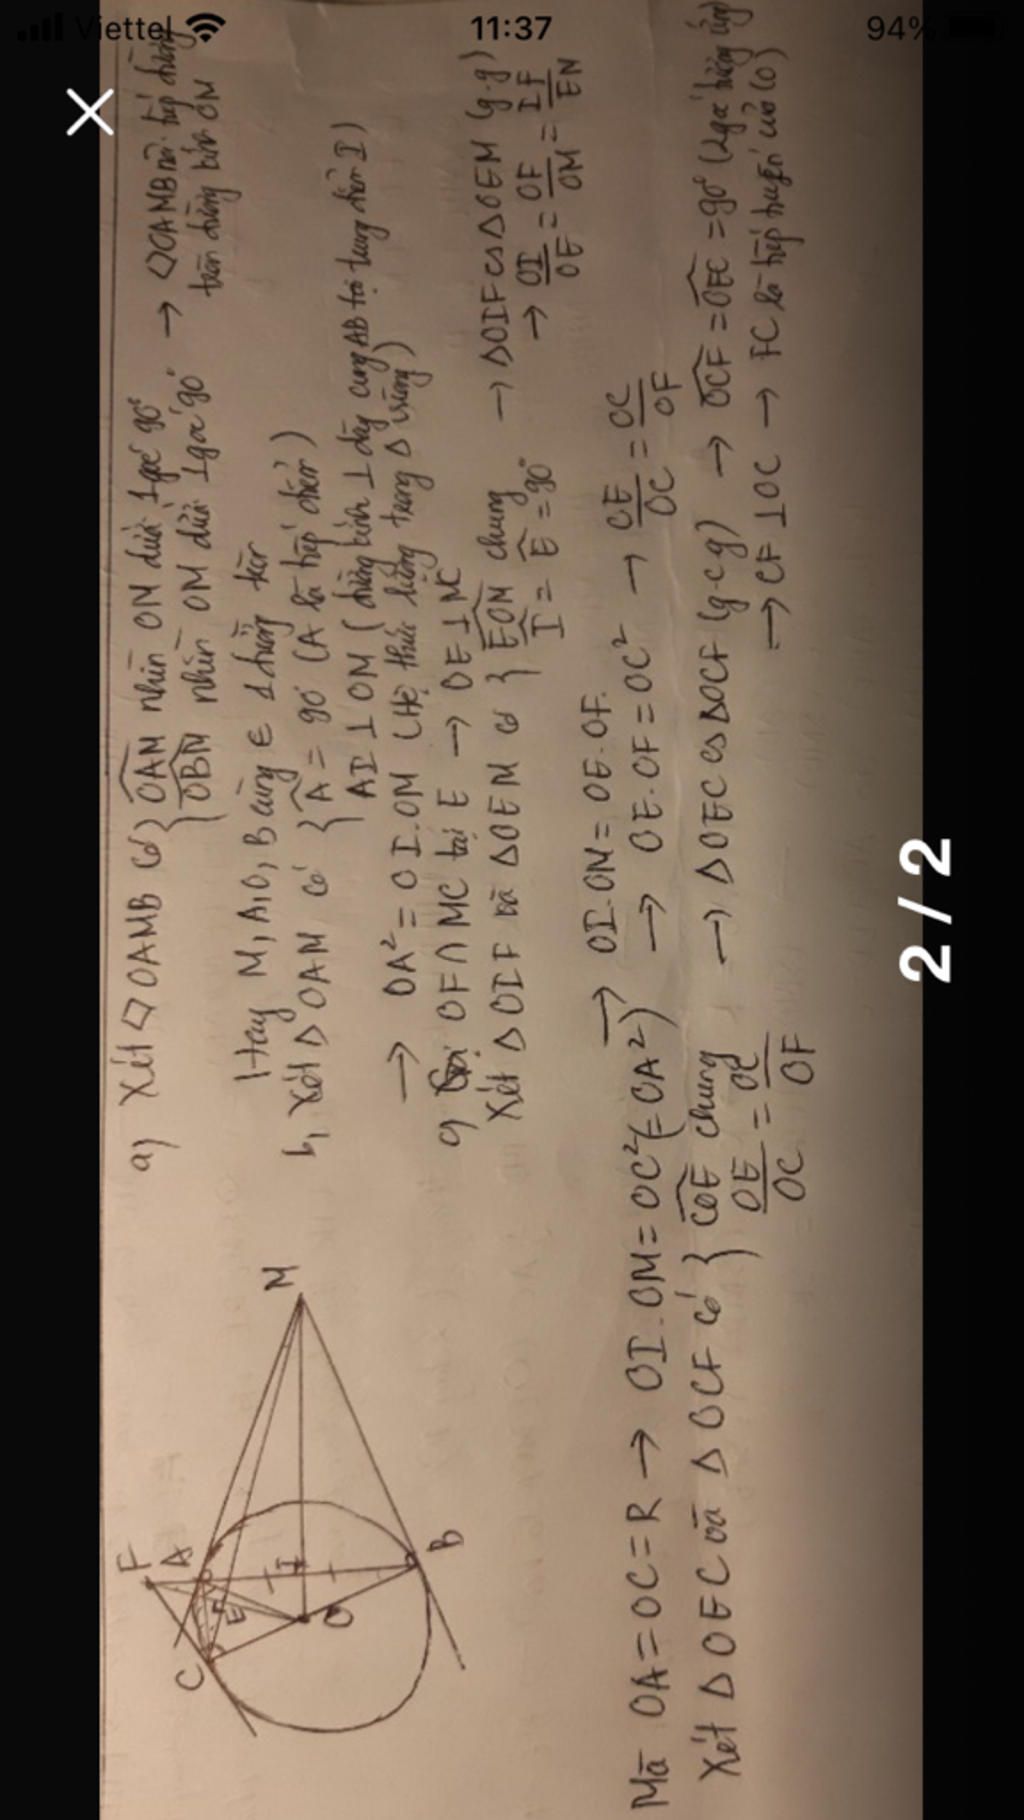 Viettel
11:37
94%
a) Xét ▱OAMB có { OAM nhìn OM dưới 1 góc 90°
OBM nhìn OM dưới 1 góc 90°
→ ▱OAMB nội tiếp đường
tròn đường kính OM
Hay M, A, O, B cùng ∈ 1 đường tròn
b, Xét Δ OAM có { Â = 90° (A là tiếp điểm)
AI ⊥ OM (đường kính ⊥ dây cung AB tại trung điểm I)
→ OA² = OI.OM (Hệ thức lượng trong Δ vuông)
OF ∩ MC tại E → OE ⊥ MC
Xét Δ OIF và Δ OEM có { EOM chung
I = E = 90°
→ Δ OIF ∽ Δ OEM (g.g)
→ OI/OE = OF/OM = IF/EM
→ OI.OM = OE.OF
Mà OA = OC = R → OI.OM = OC² (= OA²)
→ OE.OF = OC² → OE/OC = OC/OF
Xét Δ OEC và Δ OCF có { COE chung
OE/OC = OC/OF
→ Δ OEC ∽ Δ OCF (g.c.g) → OCF = OEC = 90° (2 góc tương ứng)
→ CF ⊥ OC → FC là tiếp tuyến của (O)
F
A
C
E
I
O
M
B
2 / 2